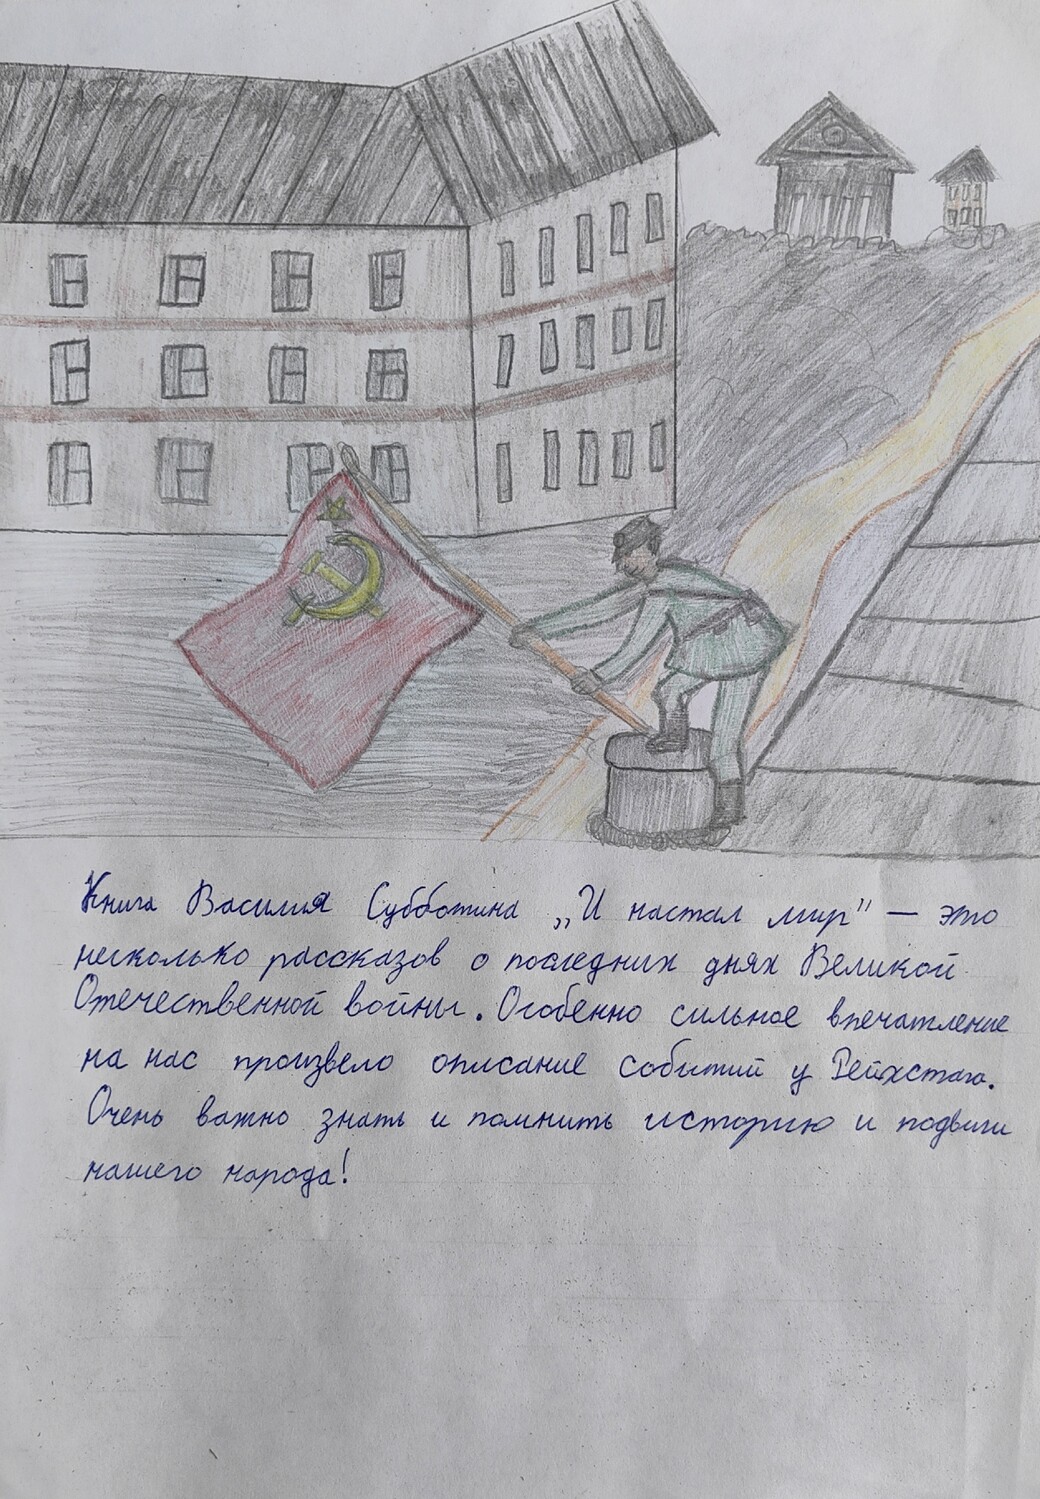 Книга Василия Субботина „И настал мир" — это
несколько рассказов о последних днях Великой
Отечественной войны. Особенно сильное впечатление
на нас произвело описание событий у Рейхстага.
Очень важно знать и помнить историю и подвиги
нашего народа!